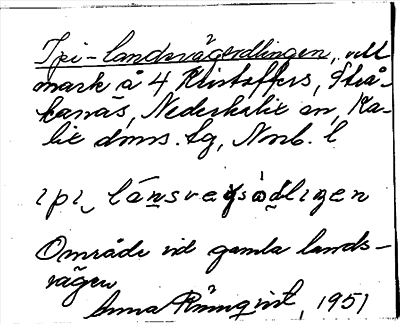 Ipi-landsvägsodlingen, vid
mark å 4 Kristoffers, Strå-
kanäs, Nederkalix sn, Ka-
lix doms. tg, Norrb. l
ipi lánsvegsòdligen
Område vid gamla lands-
vägen
Anna Rönnqvist, 1951